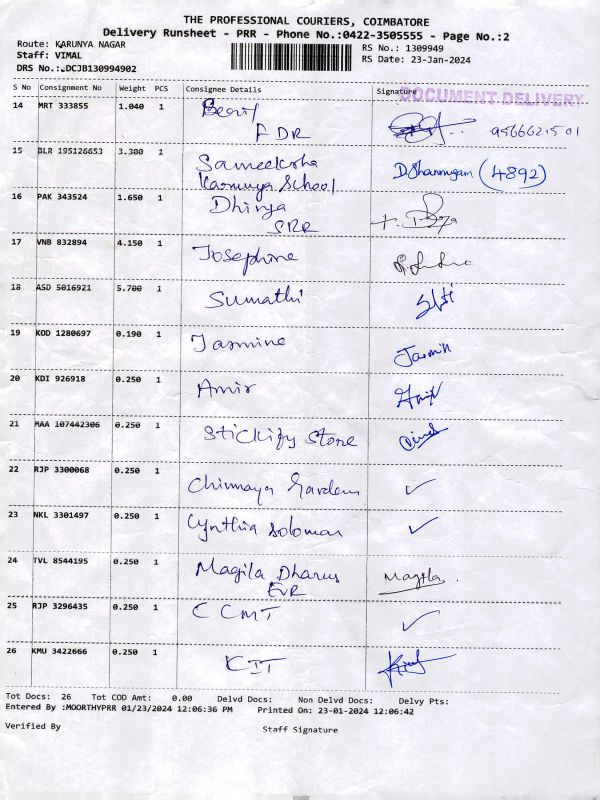 THE PROFESSIONAL COURIERS, COIMBATORE
Delivery Runsheet - PRR - Phone No.:0422-3505555 - Page No.:2
Route: KARUNYA NAGAR
RS No.: 1309949
Staff: VIMAL
RS Date: 23-Jan-2024
DRS No.:.DCJB130994902
S No Consignment No Weight PCS Consignee Details Signature
DOCUMENT DELIVERY
14 MRT 333855 1.040 1
FDR 9566621501
15 BLR 195126653 3.300 1 Sameeksha D.Shanmugam (4892)
Karunya School
16 PAK 343524 1.650 1 Dhivya
SRR
17 VNB 832894 4.150 1 Josephine
18 ASD 5016921 5.700 1 Sumathi
19 KOD 1280697 0.190 1 Jasmine Jasmin
20 KDI 926918 0.250 1 Amir
21 MAA 107442306 0.250 1 Stickify Store
22 RJP 3300068 0.250 1 Chinmaya Gardens ✓
23 NKL 3301497 0.250 1 Cynthia Solomon ✓
24 TVL 8544195 0.250 1 Magila Dharus Magila.
EVR
25 RJP 3296435 0.250 1 CCMT ✓
26 KMU 3422666 0.250 1 KIT
Tot Docs: 26 Tot COD Amt: 0.00 Delvd Docs: Non Delvd Docs: Delvy Pts:
Entered By :MOORTHYPRR 01/23/2024 12:06:36 PM Printed On: 23-01-2024 12:06:42
Verified By Staff Signature